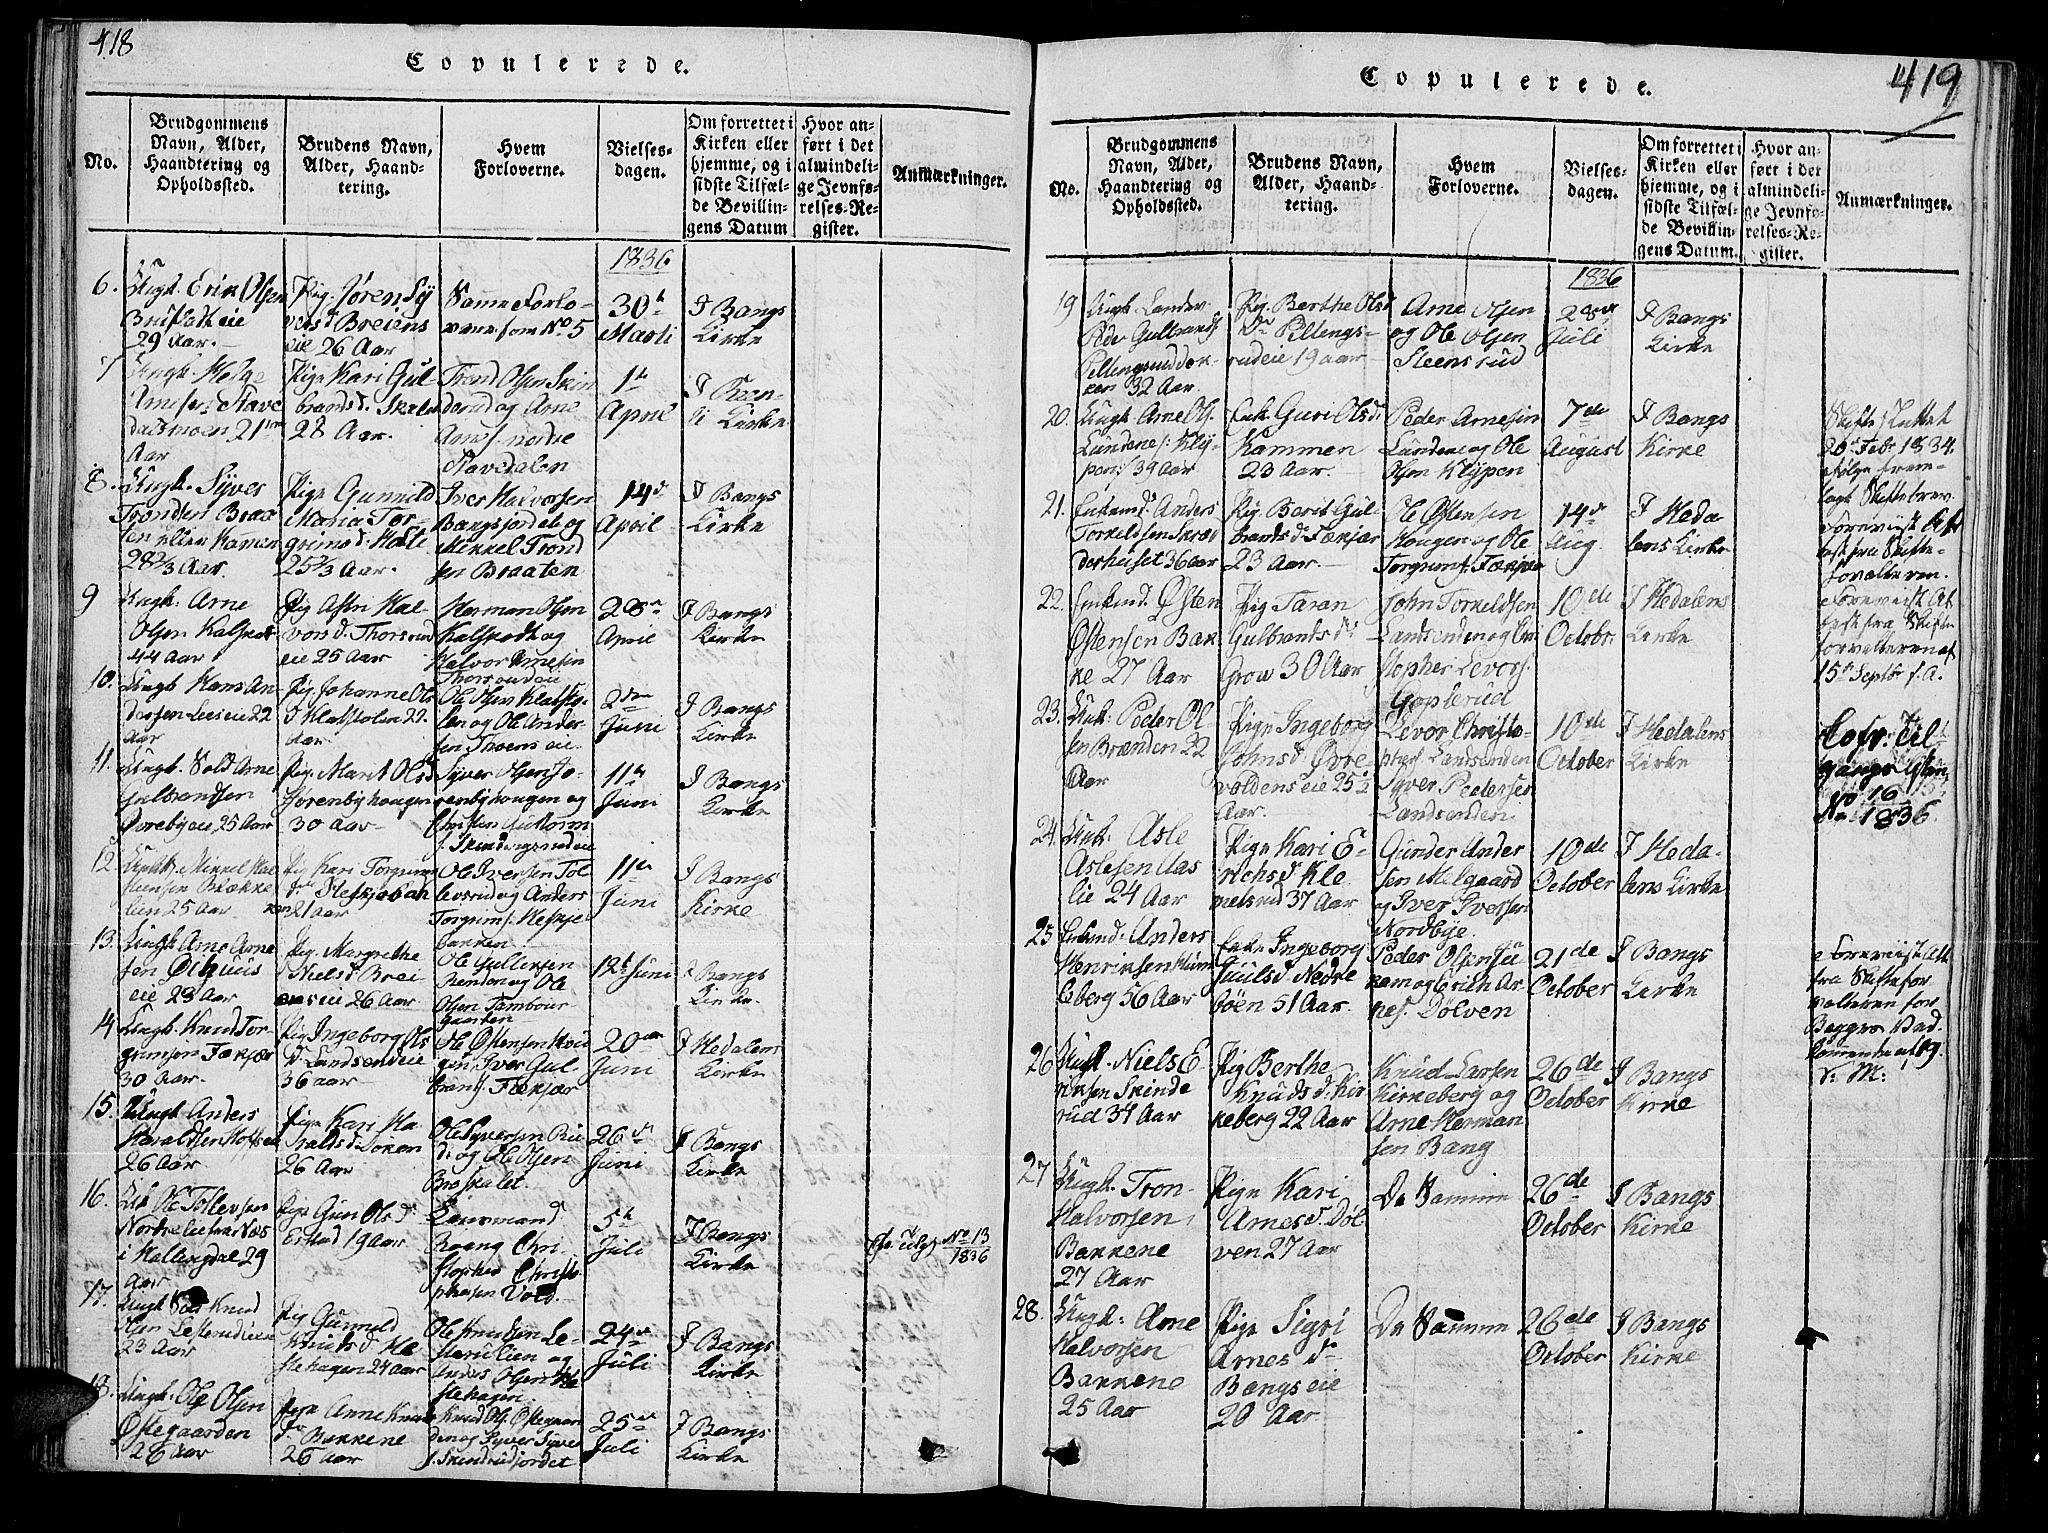 418
Copulerede.
No.
Brudgommens
Navn, Alder,
Haandtering og
Opholdssted.
Brudens Navn,
Alder, Haand-
tering.
Hvem
Forloverne.
Vielses-
dagen.
Om forrettet i
Kirken eller
hjemme, og i
sidste Tilfæl-
de Bevillin-
gens Datum
Hvor an-
ført i det
almindeli-
ge Jevnfø-
relses-Re-
gister.
Anmærkninger.
1836
6.
Ungk. Erik Olsen
eie
29 Aar.
Pig. Jøren Sy
versd. Breiens
eie 26 Aar
Samme Forlo-
vere som No 5
30te
Marti
I Bangs
Kirke
7
Ungk. Helge
Arnesen Stave
dalsmoen 21
Aar
Pige Kari Gul-
brandsd.
28 Aar.
Trond Olsen Skin
derud og Arne
Arnes. nordre
Stavedalen
1te
April
I Reen-
li Kirke
8.
Ungk. Syver
Trondsen Braa
ten eller Kammen
28 2/3 Aar.
Pige Gunnild
Maria Tor-
grimsd.
25 2/3 Aar.
Iver Halvorsen
Bangsjordet og
Mikkel Trond
sen Braaten
14de
April
I Bangs
Kirke
9
Ungk. Arne
Olsen Kalsrodt
44 Aar
Pig Astri Hal-
vorsd. Thorsrud
eie 25 Aar
Herman Olsen
Kalsrodt og
Halvor Arnesen
Thorsrudeie
28de
April
I Bangs
Kirke
10.
Ungk. Hans An
dersen Leeseie 22
Aar
Pig. Johanne Ols
d. Klastolen 22
Aar.
Ole Olsen Klasto-
len og Ole Ander
sen Thoenseie.
2den
Juni
I Bangs
Kirke
11.
Ungk. Sold Arne
Gulbrandsen
Øvrebyeie 25 Aar
Pig. Marit Olsd
Sørenbyhougen
30 Aar
Syver Olsen Sø-
renbyhougen og
Christen Guttorm
s. Skindingsrudeie
11te
Juni
I Bangs
Kirke
12
Ungk. Mikkel Hal
stensen Bløkke
lien 25 Aar
Pig Kari Torgrim
sdr. Heskjebak
ken 21 Aar
Ole Iversen Tol
levsrud og Anders
Torgrims. Heskje
bakken
11te
Juni
I Bangs
Kirke
13.
Ungk. Arne Arne
sen Olhuus
eie 23 Aar
Pig. Margrethe
Nielsd. Brei
enseie 26 Aar
Ole Gullersen
Renden og Ole
Olsen Tambour
gaarden
12te Juni
I Bangs
Kirke.
14.
Ungk. Knud Tor
grimsen Fækjær
30 Aar.
Pig Ingeborg Ols
d. Landsendeie
36 aar
Ole Østensen Hou
gen, Iver Gul
brands. Fækjær
20de
Juni
I Hedalens
Kirke
15.
Ungk. Anders
Haraldsen Hofsrud
26 Aar
Pige Kari Ha
raldsd. Loken
26 Aar
Ole Syversen Rii
de og Ole Olsen
Broskalet.
26de
Juni
I Bangs
Kirke
16.
Ole Tollevsen
Nordrelie fra Næs
i Hallingdal 29
Aar
Pige Guri Olsd
Erstad 19 aar
Leinsmand
Roang Chri
stopher Christo
phersen Vold
5te
Juli
I Bangs
Kirke
Cfr. Tilg. No 13
1836
17.
Ungk. Knud
Olsen Lesterudlien
23 Aar
Pig Gunnild
Knutsd. He
stehagen 24 Aar
Ole Knudsen Le-
sterudlien og
Anders Olsen He
stehagen.
24de
Juli
I Bangs
Kirke
18.
Ungk. Ole Olsen
Østegaarden
26 Aar
Pige Anne Knuds
d. Bakkene
26 aar
Knud Ols. Østegaar
den og Syver Syver
s. Skinderudjordet
25de
Juli
I Bangs
Kirke
419
Copulerede.
No.
Brudgommens
Navn, Alder,
Haandtering og
Opholdssted.
Brudens Navn,
Alder, Haand-
tering.
Hvem
Forloverne.
Vielses-
dagen.
Om forrettet i
Kirken eller
hjemme, og i
sidste Tilfæl-
de Bevillin-
gens Datum.
Hvor an-
ført i det
almindeli-
ge Jevnfø-
relses-Re-
gister.
Anmærkninger.
1836
19
Ungk. Landev.
Peder Gulbrands
Pellengsruddok
ken 32 Aar.
Pig. Berthe Ols
dr. Pellengs-
rudeie 19 aar
Arne Olsen
og Ole Olsen
Steensrud
28de
Juli
I Bangs
Kirke
20.
Ungk. Arne Ols.
Lundene /: Klyp
pen :/ 39 Aar
Enk. Guri Olsd.
Kammen
23 Aar.
Peder Arnesen
Lundene og Ole
Olsen Klypen
7de
August
I Bangs
Kirke
Skifte sluttet
26de Febr. 1834
ifølge frem-
lagt Skiftebrev
21.
Enkemd. Anders
Torkeldsen Skræd
derhuset 36 aar
Pig. Berit Gul-
brandsd. Fækjær
23 Aar.
Ole Østensen
Hougen og Ole
Torgrims. Fækjær
14de
Aug.
I Heda-
lens Kirke
Foreviist At
test fra Skifte-
forvalteren.
22.
Enkemd. Østen
Østensen Bak
ke 27 Aar
Pig Taran
Gulbrandsdr.
Grow 30 Aar
John Torkeldsen
Landsenden og Chri
stopher Levors.
Goplerud
10de
Octobr.
I Hedalens
Kirke
Foreviist At
test fra Skifte
forvalteren af
15de Septbr. s. A.
23.
Ungk. Peder Ol
sen Brænden 22
Aar
Pige Ingeborg
Johnsd. Øvre
voldens eie 25½
Aar.
Levor Christo-
phers. Landsenden
Syver Pedersen
Landsenden.
10de
October
I Hedalens
Kirke
Cofr. Til
gangs Listen
No 16
1836.
24.
Ungk. Asle
Aslesen Aas
lie 24 Aar
Pige Kari E-
richsd. Kle
metsrud 37 Aar
Gunder Ander
sen Melgaard
og Iver Iversen
Nordbye.
10de
October
I Heda-
lens Kirke
25
Enkemd. Anders
Henriksen Hum
leberg 56 Aar
Enke Ingeborg
Juulsd. Nedre
Søen 51 Aar.
Peder Olsen Ju
ram og Erich Ar
nes. Dølven
21de
October
I Bangs
Kirke
Foreviist Att
fra Skiftefor
valteren for
Begges Ved-
kommende af 19
S: M:
26
Ungk. Niels E
riksen Skinde
rud 31 Aar
Pig Berthe
Knudsd. Kir
keberg 22 Aar
Knud Larsen
Kirkeberg og
Arne Herman
sen Bang
26de
October
I Bangs
Kirke
27
Ungk. Tron
Halvorsen
Bakkene
27 Aar
Pige Kari
Arnesd. Døl
ven 27 Aar
De Samme
26de
October
I Bangs
Kirke
28.
Ungk. Arne
Halvorsen
Bakkene
25 Aar
Pige Sigri
Arnesdr.
Bangs eie
20 Aar.
De Samme
26de
October
I Bangs
Kirke